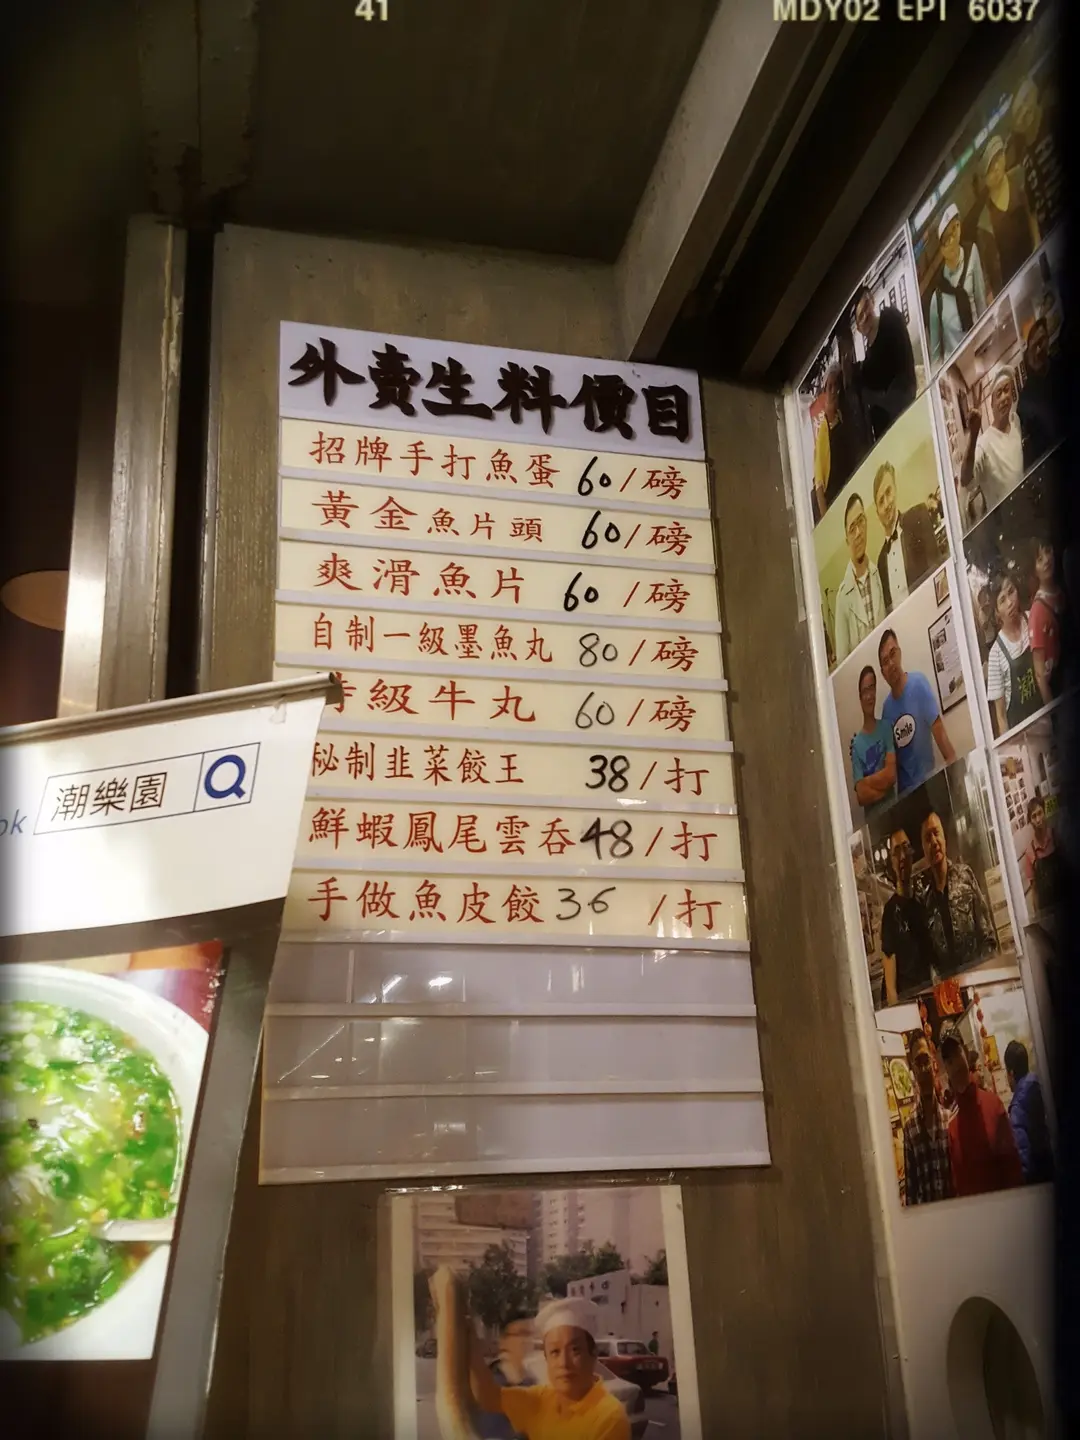 41
MDY02 EPI 6037
外賣生料價目
招牌手打魚蛋 60/磅
黃金魚片頭 60/磅
爽滑魚片 60/磅
自制一級墨魚丸 80/磅
特級牛丸 60/磅
秘制韭菜餃王 38/打
鮮蝦鳳尾雲吞 48/打
手做魚皮餃 36/打
ok 潮樂園
Smile
潮